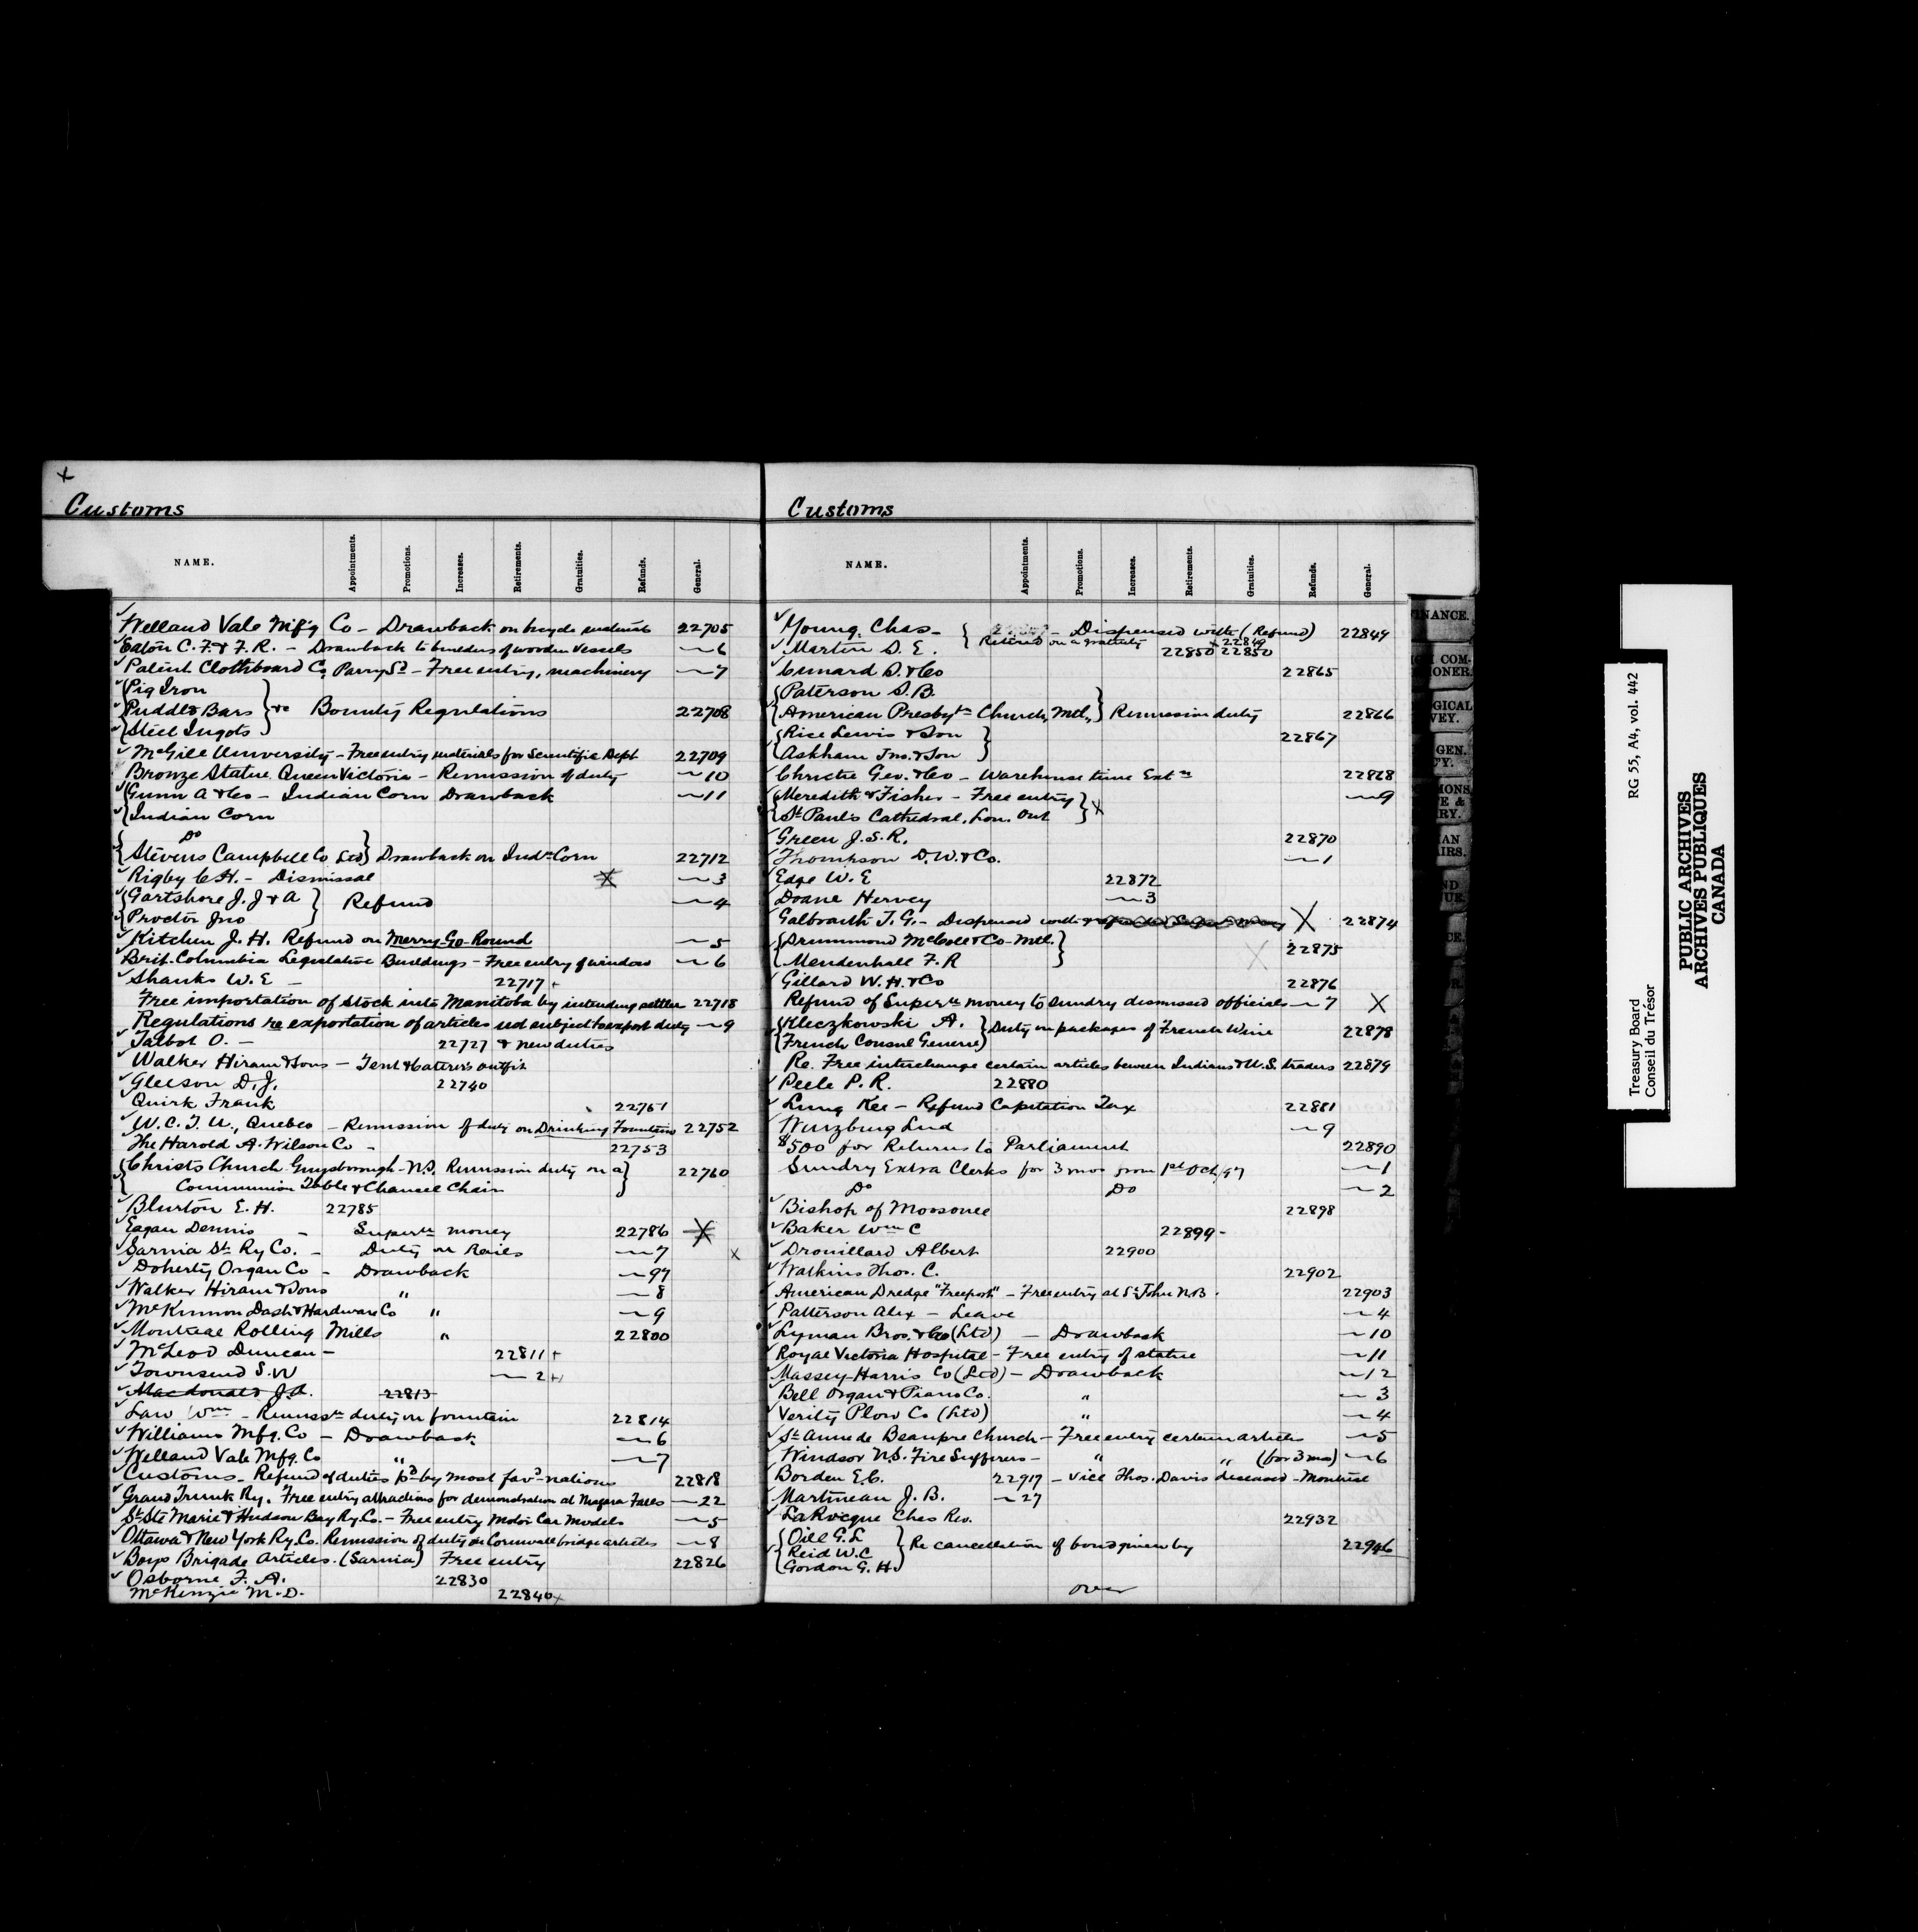 x
Customs
NAME. Appointments. Promotions. Increases. Retirements. Gratuities. Refunds. General.
Welland Vale Mf'g Co – Drawback on bicycle materials 22705
Eaton C. F. & F. R. – Drawback to builders of wooden vessels 6
Patent Clothboard Co, Parry Sd – Free entry, machinery 7
Pig Iron
Puddle Bars &c Bounty Regulations 22708
Steel Ingots
McGill University – Free entry materials for Scientific Dept 22709
Bronze Statue Queen Victoria – Remission of duty 10
Gunn A & Co – Indian Corn Drawback 11
Indian Corn
Do
Stevens Campbell Co Ltd Drawback on Indn Corn 22712
Rigby C H. – Dismissal 3
Gartshore J. J & A Refund 4
Proctor Jno
Kitchen J. H. Refund on Merry-Go-Round 5
Brit. Columbia Legislative Buildings – Free entry of window 6
Shanks W. E – 22717
Free importation of Stock into Manitoba by intending settler 22718
Regulations re exportation of articles not subject to export duty 9
Talbot O. – 22727 & new duties
Walker Hiram & Sons – Tent & Caterer's outfit
Gleeson D. J. 22740
Quirk Frank 22751
W. C. T. U., Quebec – Remission of duty on Drinking Fountain 22752
The Harold A. Wilson Co – 22753
Christs Church Guysborough – N.S. Remission duty on a 22760
Communion Table & Chancel Chair
Blurton E. H. 22785
Eagan Dennis – Superan money 22786
Sarnia St. Ry Co. – Duty on Rails 7 x
Doherty Organ Co – Drawback 97
Walker Hiram & Sons " 8
McKinnon Dash & Hardware Co " 9
Montreal Rolling Mills " 22800
McLeod Duncan – 22811
Townsend S. W 2
Macdonald J. A. 22813
Law Wm – Remissn duty on fountain 22814
Williams Mfg. Co – Drawback 6
Welland Vale Mfg. Co " 7
Customs – Refund of duties pd by most favd nations 22818
Grand Trunk Ry. Free entry attractions for demonstration at Niagara Falls 22
St. Ste Marie & Hudson Bay Ry Co. – Free entry Motor Car Models 5
Ottawa & New York Ry. Co. Remission of duty on Cornwall bridge articles 8
Boys Brigade Articles. (Sarnia) Free entry 22826
Osborne F. A. 22830
McKenzie M. D. 22840
Customs
NAME. Appointments. Promotions. Increases. Retirements. Gratuities. Refunds. General.
Young, Chas – Dispensed with (Refund) 22849
Martin S. E. Retired on a gratuity 22850 22849 22850
Cunard S. & Co 22865
Paterson S. B.
American Presbytn Church, Mtl., Remission duty 22866
Rice Lewis & Son 22867
Askham Jno. & Son
Christie Geo. & Co – Warehouse time Extn 22868
Meredith & Fisher – Free entry 9
St Paul's Cathedral, Lon. Ont x
Green J. S. R. 22870
Thompson D. W. & Co. 1
Edge W. E 22872
Doane Hervey 3
Galbraith T. G. – Dispensed with X 22874
Drummond McCall & Co – Mtl. 22875
Mendenhall F. R
Gillard W. H. & Co 22876
Refund of Superan money to sundry dismissed officials 7 X
Kleczkowski A. Duty on packages of French Wine 22878
French Consul General
Re. Free interchange certain articles between Indians & U.S. traders 22879
Peele P. R. 22880
Lung Kee – Refund Capitation Tax 22881
Wurzburg Lud 9
$500 for Returns to Parliament 22890
Sundry Extra Clerks for 3 mos from 1st Oct/97 1
Do Do 2
Bishop of Moosonee 22898
Baker Wm C 22899 –
Drouillard Albert 22900
Watkins Thos. C. 22902
American Dredge "Freeport" – Free entry at St John N.B. 22903
Patterson Alex – Leave 4
Lyman Bros. & Co (Ltd) – Drawback 10
Royal Victoria Hospital – Free entry of statue 11
Massey-Harris Co (Ltd) – Drawback 12
Bell Organ & Piano Co. " 3
Verity Plow Co (Ltd) " 4
St Anne de Beaupre Church – Free entry certain articles 5
Windsor N.S. Fire Sufferers – " " (for 3 mos) 6
Borden E. C. 22917 – Vice Thos. Davis deceased – Montreal
Martineau J. B. 27
LaRocque Chas Rev. 22932
Oill G. L
Reid W. C Re cancellation of bond given by 22946
Gordon G. H.
over
FINANCE.
COM-
ONER.
GICAL
VEY.
GEN.
CY.
MONS
E &
RY.
IAN
AIRS.
ND
UE.
CE.
R.
Treasury Board RG 55, A4, vol. 442
Conseil du Trésor
PUBLIC ARCHIVES
ARCHIVES PUBLIQUES
CANADA